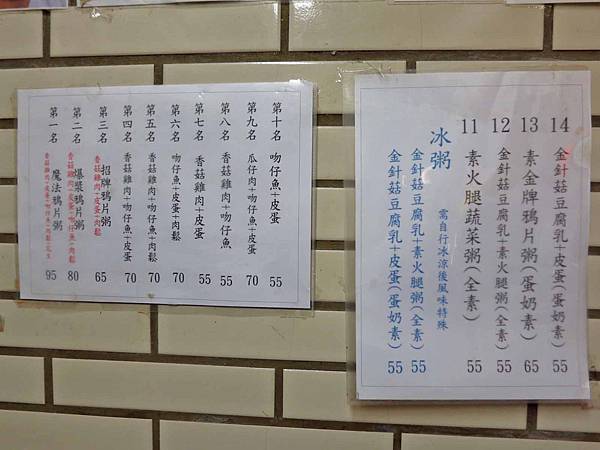 第十名 吻仔魚+皮蛋 55
第九名 瓜仔肉+吻仔魚+皮蛋 70
第八名 香菇雞肉+吻仔魚 55
第七名 香菇雞肉+皮蛋 55
第六名 吻仔魚+皮蛋+肉鬆 70
第五名 香菇雞肉+吻仔魚+肉鬆 70
第四名 香菇雞肉+吻仔魚+皮蛋 70
第三名 招牌鴉片粥 65
香菇雞肉+皮蛋+肉鬆
第二名 爆漿鴉片粥 80
第一名 魔法鴉片粥 95
14 金針菇豆腐乳+皮蛋(蛋奶素) 55
13 素金牌鴉片粥(蛋奶素) 65
12 金針菇豆腐乳+素火腿粥(全素) 55
11 素火腿蔬菜粥(全素) 55
冰粥 需自行冰涼後風味特殊
金針菇豆腐乳+素火腿粥(全素) 55
金針菇豆腐乳+皮蛋(蛋奶素) 55